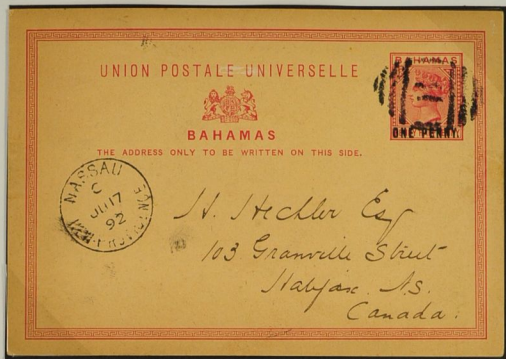 UNION POSTALE UNIVERSELLE
BAHAMAS
THE ADDRESS ONLY TO BE WRITTEN ON THIS SIDE.
BAHAMAS
ONE PENNY.
NASSAU
C
JU 17
92
H. Hechler Esq
103 Granville Street
Halifax. N.S.
Canada.